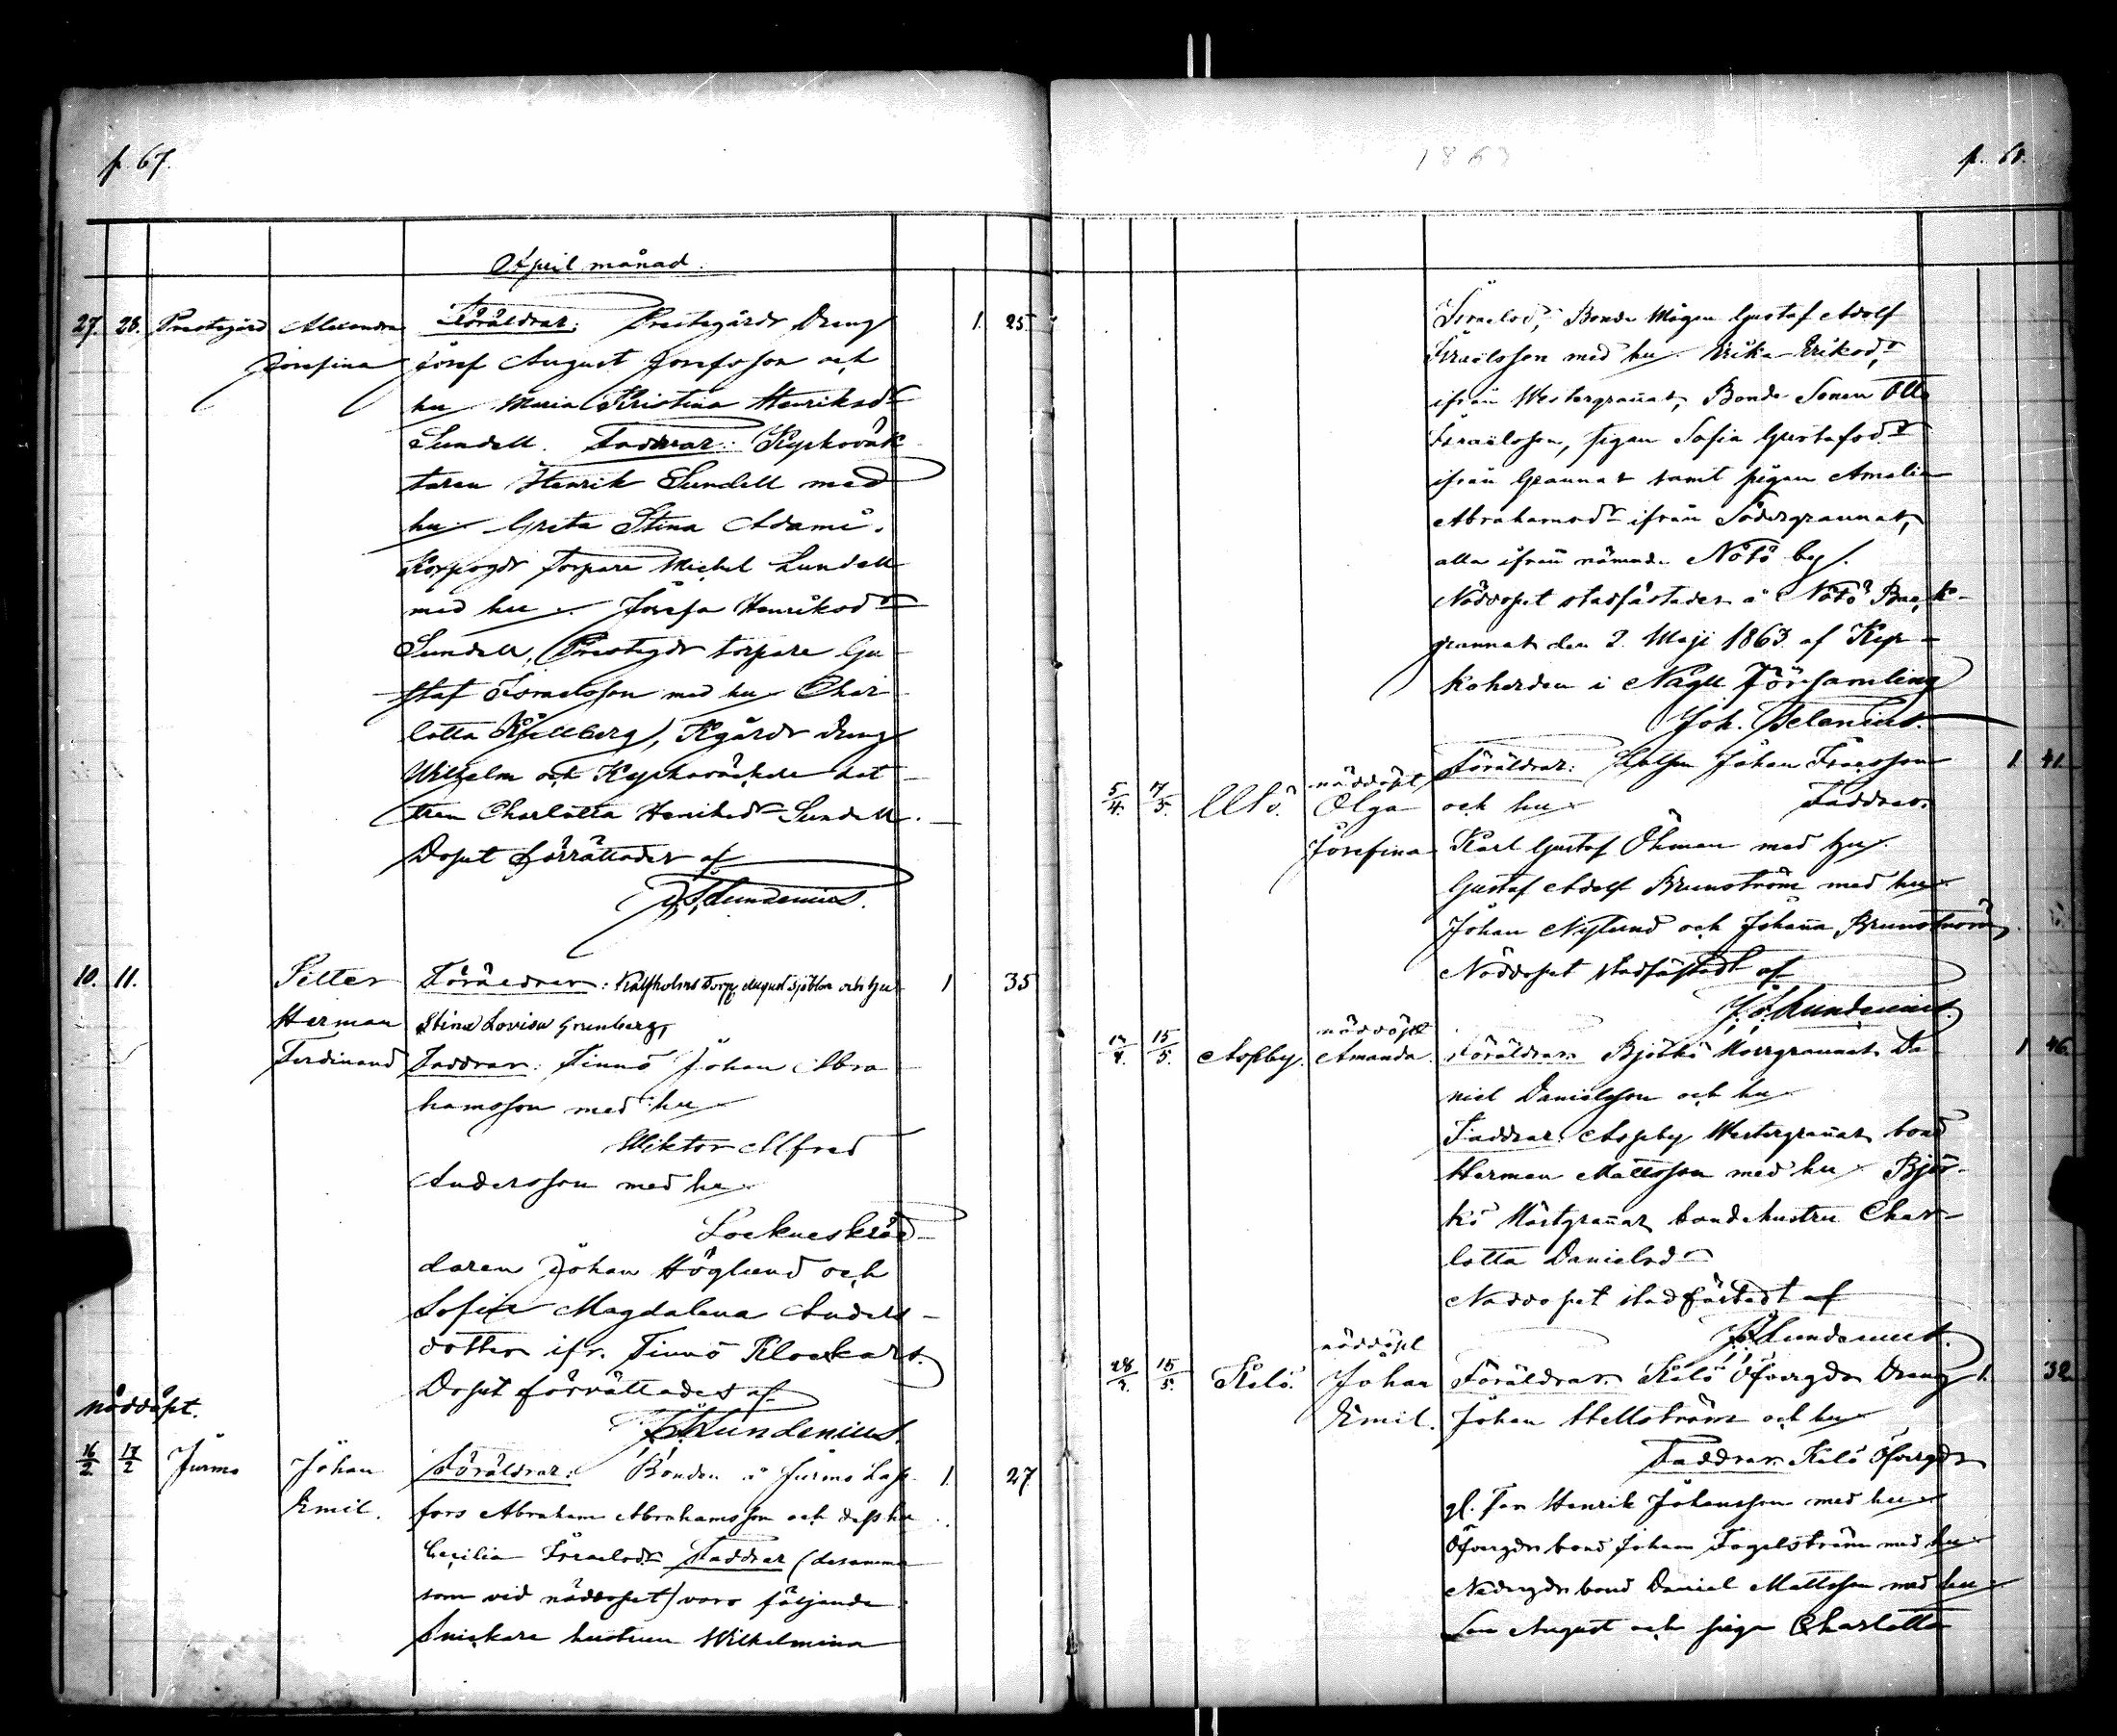 p. 67.
April månad.
27. 28. Prestegård Alexandra Föräldrar: Prestegårds Dreng 1. 25.
Josefina Josef August Josefsson och
hu Maria Kristina Henriksdr
Sundell. Faddrar: Kyrkovåk-
taren Henrik Sundell med
hu Greta Stina Adami.
Korpogds torpare Michel Lundell
med hu Josefa Henriksdr
Sundell, Prestegds torpare Gu-
staf Israelsson med hu Char-
lotta Kjellberg, Kgårds dreng
Wilhelm och Kyrkovåktare dot-
tren Charlotta Henriksdr Sundell.
Dopet förrättades af
Lundenius.
10. 11. Petter Föräldrar: Kalfholms Torp. August Sjöblom och hu 1 35
Herman Stina Lovisa Grunberg,
Ferdinand Faddrar: Finnö Johan Abra-
hamsson med hu
Wiktor Alfred
Andersson med hu
Sockneskräd-
daren Johan Höglund och
Sofia Magdalena Anders-
dotter ifr. Finnö Klockars.
Dopet förrättades af
Lundenius.
nöddöpt.
16/2 17/2 Jurmo Johan Föräldrar: Bonden å Jurmo 1. 27
Emil. fors Abraham Abrahamsson och dess hu
Cecilia Israelsdr Faddrar (desamma
som vid nöddopet) voro följande
Snickare hustrun Wilhelmina
1863
p. 68.
Israelsd., Bonde Mågen Gustaf Adolf
Israelsson med hu Erika Eriksdr
ifrån Westergrannas, Bonde Sonen Otto
Israelsson, pigan Sofia Gustafsdr
ifrån Grannas samt pigan Amalia
Abrahamsdr ifrån Södergrannas,
alla ifrån nämnde Nötö by.
Nöddopet stadfästades å Nötö Back-
grannas den 2. Maji 1863 af Kyr-
koherden i Nagu Församling
Joh. Helenius.
5/4. 17/5. Utö. nöddöpt Föräldrar: Johan Isacsson 1. 41.
Olga och hu Faddrar
Josefina Karl Gustaf Öhman med hu
Gustaf Adolf Brunström med hu
Johan Nylund och Johanna Brunström
Nöddopet stadfästadt af
Lundenius.
15/5. Aspby. nöddöpt Amanda. Föräldrar: Björkö Norrgrannas Da- 1 46.
niel Danielsson och hu
Faddrar: Aspby Westergrannas bond
Herman Mattsson med hu Björ-
kö bondehustru Char-
lotta Danielsdr
Nöddopet stadfästadt af
Lundenius.
15/5. Kälö. nöddöpt Johan Föräldrar: Kälö Öfvergds Dreng 1. 32
Emil. Johan Hellström och hu
Faddrar: Kälö Öfvergds
gl. far Henrik Johansson med hu
Öfvergds bond Johan Fogelström med hu
Nedergds bond Daniel Mattsson med hu
Son August och piga Charlotta